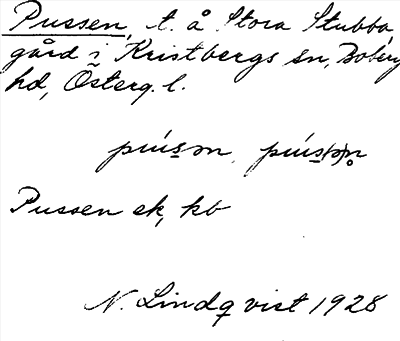 Pussen, t. å Stora Stubba
gård i Kristbergs sn, Boberg
hd, Österg. l.
Pussen ek, kb
N. Lindqvist 1928